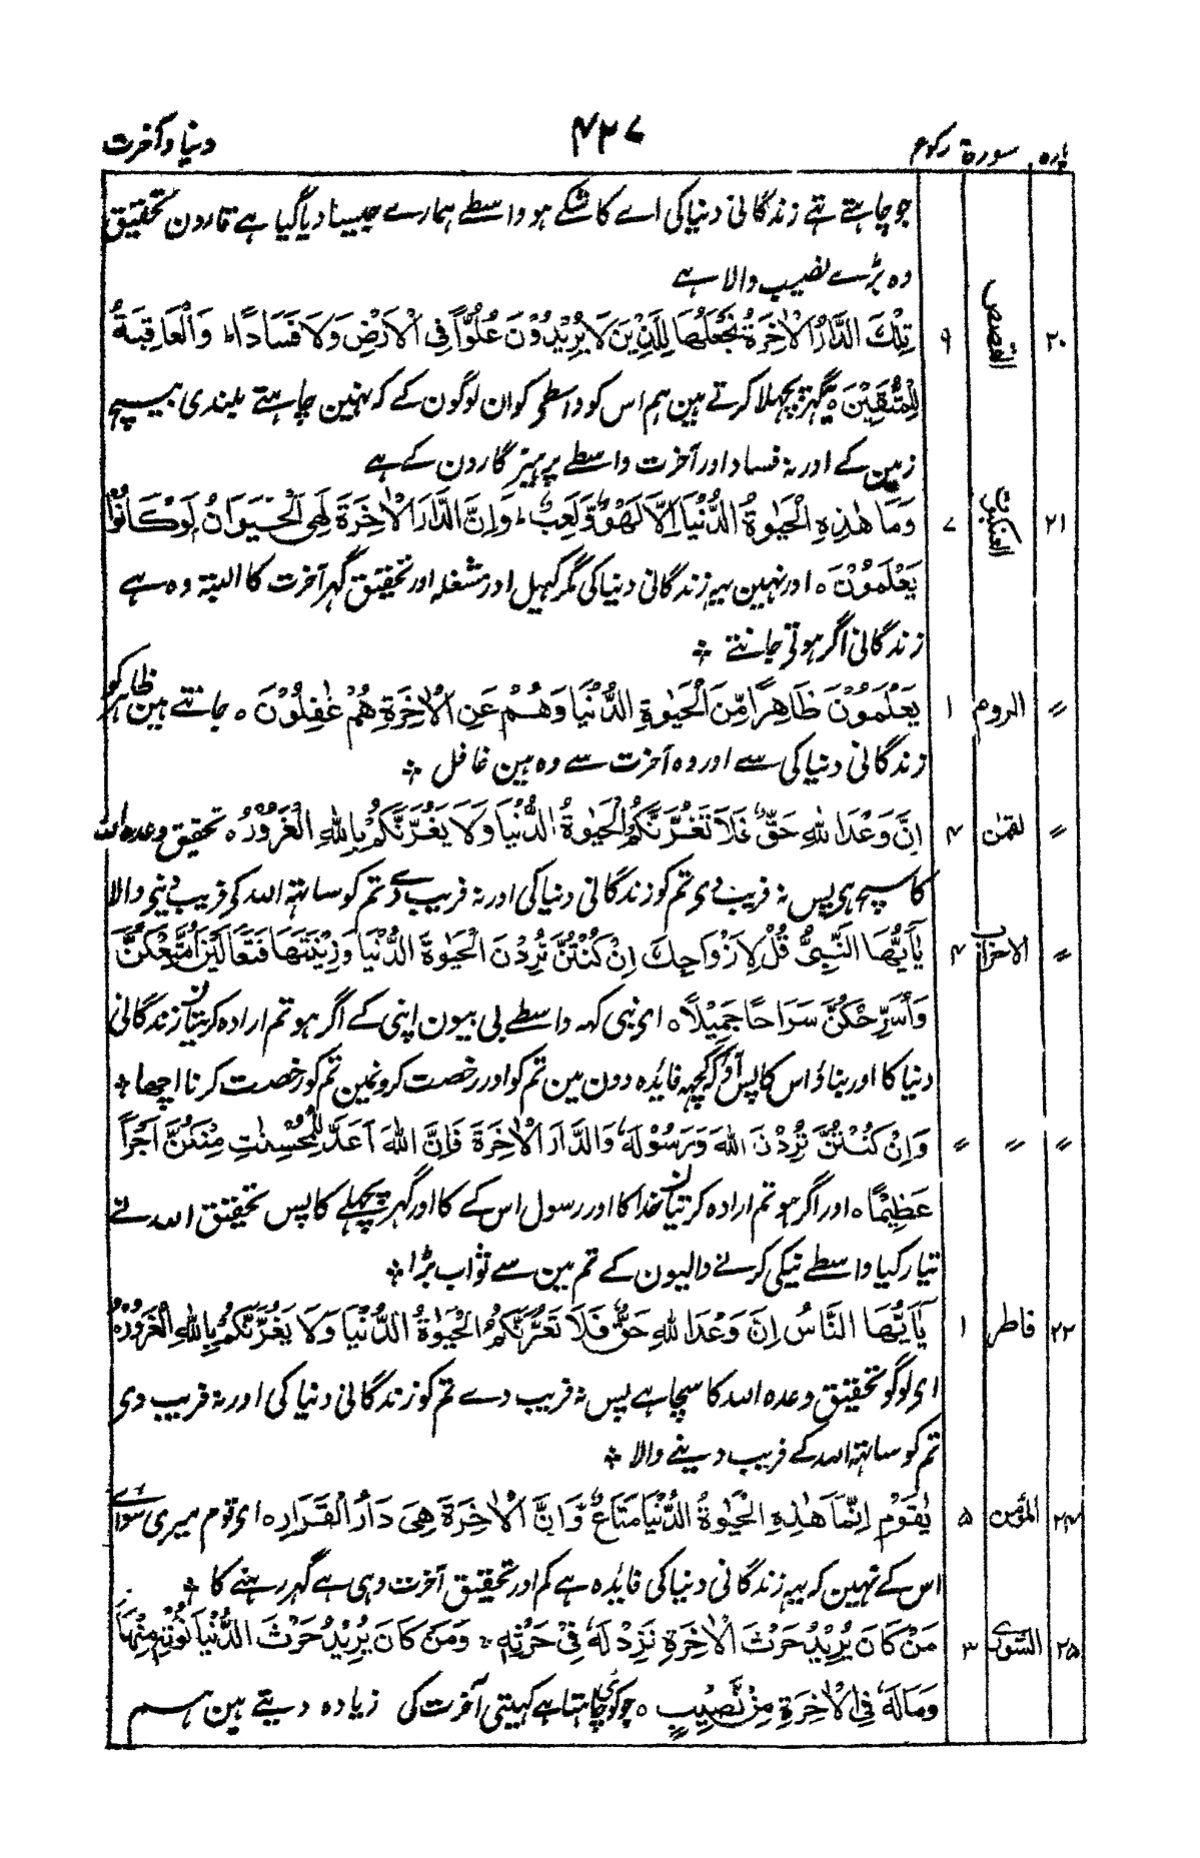 پاره سورة رکوع ۴۲۷ دنیا و آخرت
جو چاہتے تہے زندگانی دنیا کی اے کاشکے ہو واسطے ہمارے جیسا دیا گیا ہے قارون تحقیق
وہ بڑے نصیب والا ہے
۲۰ القصص ۹ تِلْكَ الدَّارُ الْاٰخِرَةُ نَجْعَلُهَا لِلَّذِيْنَ لَا يُرِيْدُوْنَ عُلُوًّا فِى الْاَرْضِ وَلَا فَسَادًا ؕ وَالْعَاقِبَةُ
لِلْمُتَّقِيْنَ ہ یہ گہر پچہلا کرتے ہین ہم اس کو واسطے کو ان لوگون کے کہ نہین چاہتے بلندی بیچ
زمین کے اور نہ فساد اور آخرت واسطے پرہیز گارون کے ہے
۲۱ العنکبوت ۷ وَمَا هٰذِهِ الْحَيٰوةُ الدُّنْيَا اِلَّا لَهْوٌ وَّلَعِبٌ ؕ وَاِنَّ الدَّارَ الْاٰخِرَةَ لَهِىَ الْحَيَوَانُ لَوْ كَانُوْا
يَعْلَمُوْنَ ہ اور نہین یہ زندگانی دنیا کی مگر کہیل اور مشغلہ اور تحقیق گہر آخرت کا البتہ وہ ہے
زندگانی اگر ہوتی جانتے ؞
〃 الروم ۱ يَعْلَمُوْنَ ظَاهِرًا مِّنَ الْحَيٰوةِ الدُّنْيَا وَهُمْ عَنِ الْاٰخِرَةِ هُمْ غٰفِلُوْنَ ہ جانتے ہین ظاہر کو
زندگانی دنیا کی سے اور وہ آخرت سے وہ ہین غافل ؞
〃 لقمٰن ۴ اِنَّ وَعْدَ اللّٰهِ حَقٌّ فَلَا تَغُرَّنَّكُمُ الْحَيٰوةُ الدُّنْيَا وَلَا يَغُرَّنَّكُمْ بِاللّٰهِ الْغَرُوْرُ ہ تحقیق وعدہ اللہ
کا سچ ہی پس نہ فریب دی تم کو زندگانی دنیا کی اور نہ فریب دے تم کو ساتہ اللہ کی فریب دینی والا
〃 الاحزاب ۴ يٰاَيُّهَا النَّبِىُّ قُلْ لِاَزْوَاجِكَ اِنْ كُنْتُنَّ تُرِدْنَ الْحَيٰوةَ الدُّنْيَا وَزِيْنَتَهَا فَتَعَالَيْنَ اُمَتِّعْكُنَّ
وَاُسَرِّحْكُنَّ سَرَاحًا جَمِيْلًا ہ ای نبی کہہ واسطے بی بیون اپنی کے اگر ہو تم ارادہ کرتیان زندگانی
دنیا کا اور بناؤ اس کا پس آؤ کہ کچہہ فائدہ دون مین تم کو اور رخصت کرون مین تم کو رخصت کرنا اچہا ؞
〃 〃 〃 وَاِنْ كُنْتُنَّ تُرِدْنَ اللّٰهَ وَرَسُوْلَهٗ وَالدَّارَ الْاٰخِرَةَ فَاِنَّ اللّٰهَ اَعَدَّ لِلْمُحْسِنٰتِ مِنْكُنَّ اَجْرًا
عَظِيْمًا ہ اور اگر ہو تم ارادہ کرتیان خدا کا اور رسول اس کے کا اور گہر پچہلے کا پس تحقیق اللہ نے
تیار کیا واسطے نیکی کرنے والیون کے تم مین سے ثواب بڑا ؞
۲۲ فاطر ۱ يٰاَيُّهَا النَّاسُ اِنَّ وَعْدَ اللّٰهِ حَقٌّ فَلَا تَغُرَّنَّكُمُ الْحَيٰوةُ الدُّنْيَا وَلَا يَغُرَّنَّكُمْ بِاللّٰهِ الْغَرُوْرُ ہ
ای لوگو تحقیق وعدہ اللہ کا سچا ہے پس نہ فریب دے تم کو زندگانی دنیا کی اور نہ فریب دی
تم کو ساتہ اللہ کے فریب دینے والا ؞
۲۴ المؤمن ۵ يٰقَوْمِ اِنَّمَا هٰذِهِ الْحَيٰوةُ الدُّنْيَا مَتَاعٌ وَّاِنَّ الْاٰخِرَةَ هِىَ دَارُ الْقَرَارِ ہ ای قوم میری سوائے
اس کے نہین کہ یہہ زندگانی دنیا کی فائدہ ہے کم اور تحقیق آخرت وہی ہے گہر رہنے کا ؞
۲۵ الشوریٰ ۳ مَنْ كَانَ يُرِيْدُ حَرْثَ الْاٰخِرَةِ نَزِدْ لَهٗ فِىْ حَرْثِهٖ ؞ وَمَنْ كَانَ يُرِيْدُ حَرْثَ الدُّنْيَا نُؤْتِهٖ مِنْهَا
وَمَا لَهٗ فِى الْاٰخِرَةِ مِنْ نَّصِيْبٍ ہ جو کوئی چاہتا ہے کہیتی آخرت کی زیادہ دیتے ہین ہم